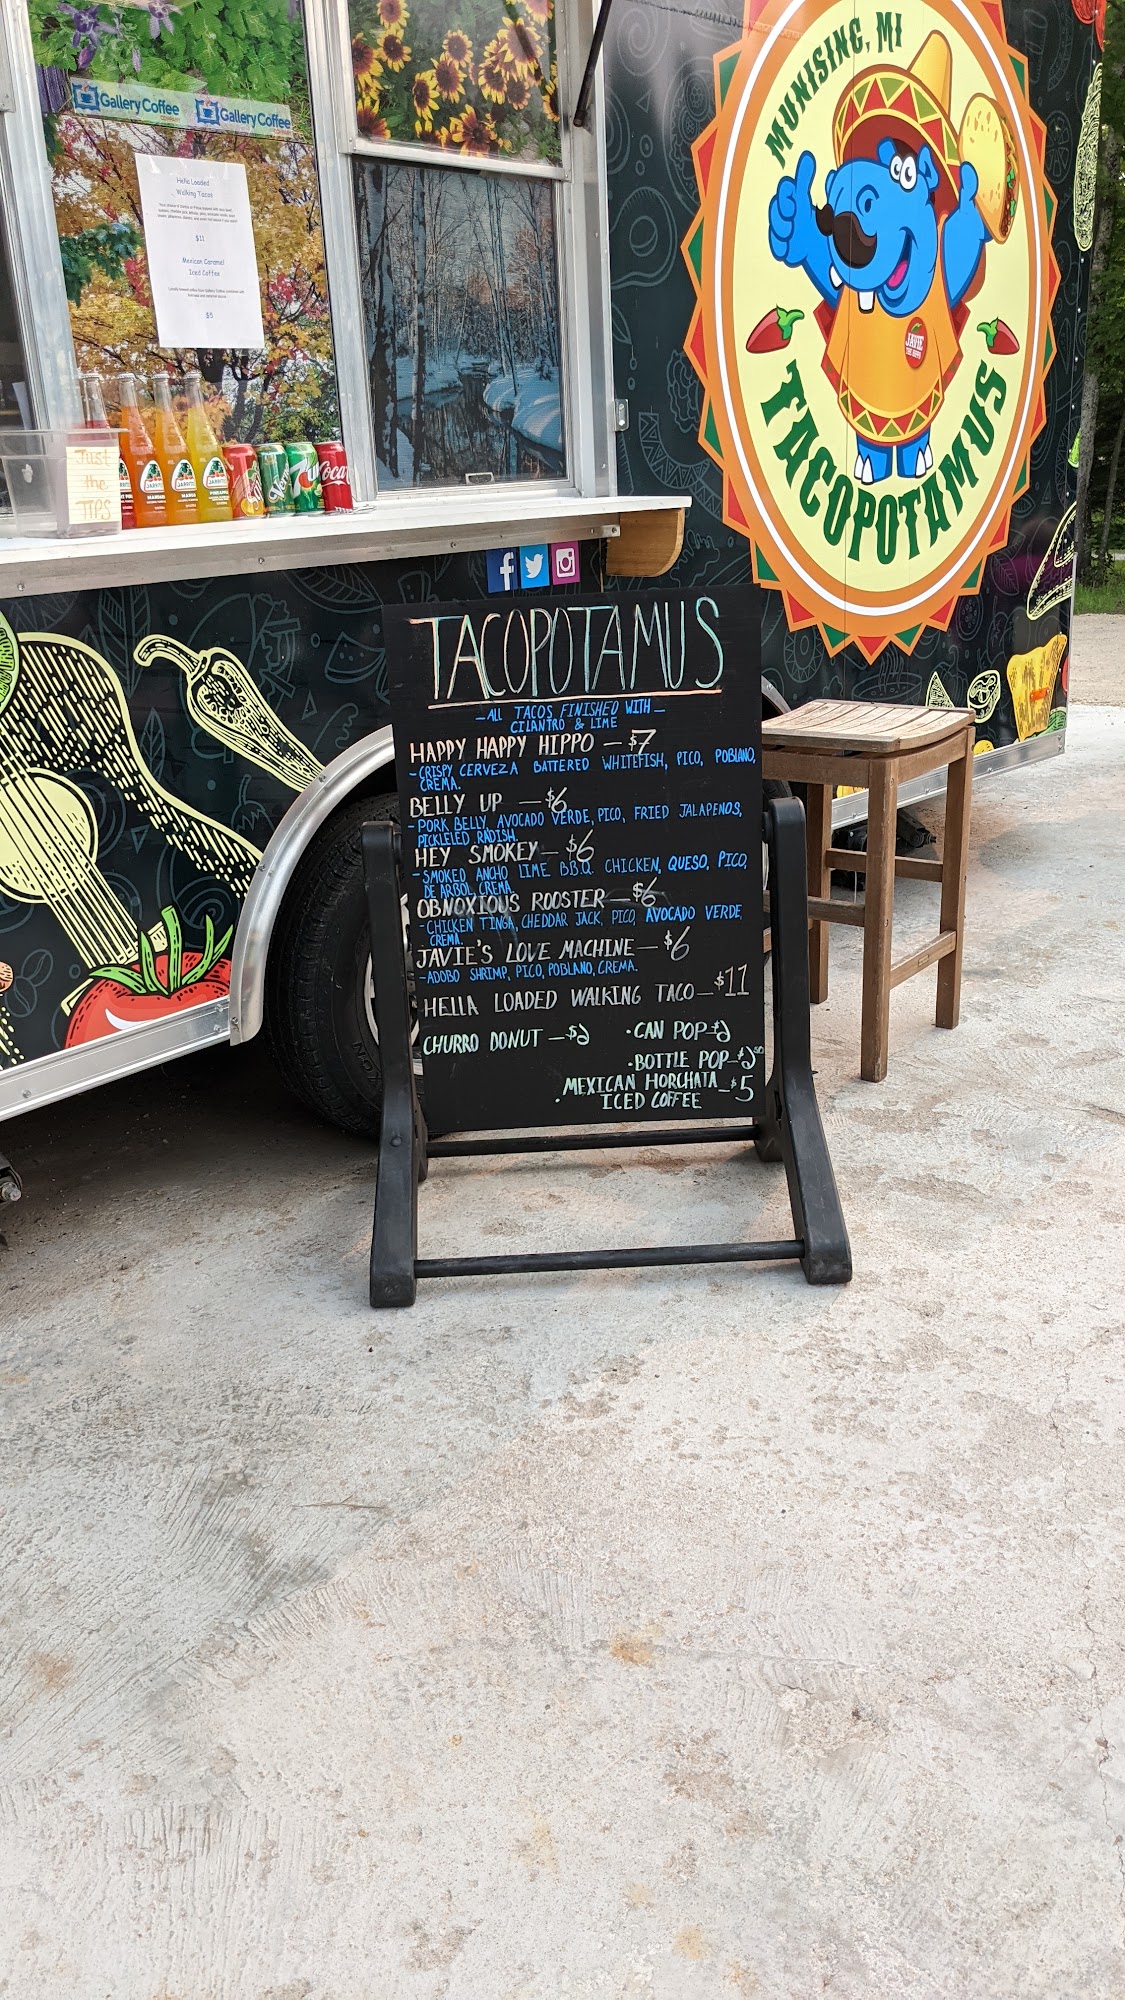 Gallery Coffee
Gallery Coffee
Hella Loaded
Walking Tacos
$11
Mexican Caramel
Iced Coffee
$5
Just
the
TIPS
JARRITOS
JARRITOS
JARRITOS
7up
Coca
MUNISING, MI
JAVIE
THE HIPPO
TACOPOTAMUS
TACOPOTAMUS
- ALL TACOS FINISHED WITH -
CILANTRO & LIME
HAPPY HAPPY HIPPO - $7
- CRISPY CERVEZA BATTERED WHITEFISH, PICO, POBLANO,
CREMA.
BELLY UP - $6
- PORK BELLY, AVOCADO VERDE, PICO, FRIED JALAPENOS,
PICKLELED RADISH.
HEY SMOKEY - $6
- SMOKED ANCHO LIME B.B.Q. CHICKEN, QUESO, PICO,
DE ARBOL, CREMA.
OBNOXIOUS ROOSTER - $6
- CHICKEN TINGA, CHEDDAR JACK, PICO, AVOCADO VERDE,
CREMA.
JAVIE'S LOVE MACHINE - $6
- ADOBO SHRIMP, PICO, POBLANO, CREMA.
HELLA LOADED WALKING TACO - $11
CHURRO DONUT - $2
• CAN POP - $2
• BOTTLE POP - $2.50
• MEXICAN HORCHATA - $5
ICED COFFEE